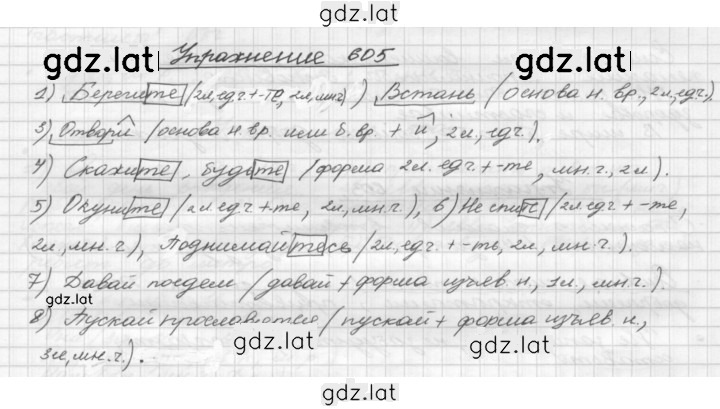 gdz.lat
gdz.lat Упражнение 605 gdz.lat
1) Берегите (2л, ед.ч + -те, 2л, мн.ч) Встань (основа н. вр., 2л, ед.ч.).
3) Отвори (основа н. вр. или б. вр. + и, 2л, ед.ч).
4) Скажите, будьте (форма 2л. ед.ч + -те, мн.ч., 2л).
5) Окуните (2л ед.ч + те, 2л, мн.ч.), 6) Не спите (2л ед.ч + -те,
2л, мн.ч), Поднимайтесь (2л, ед.ч. + -ть, 2л, мн.ч.).
7) Давай поедем (давай + форма изъяв. н., 1л, мн.ч.).
gdz.lat
8) Пускай прославятся (пускай + форма изъяв. н.,
gdz.lat gdz.lat
3л, мн.ч.).
gdz.lat